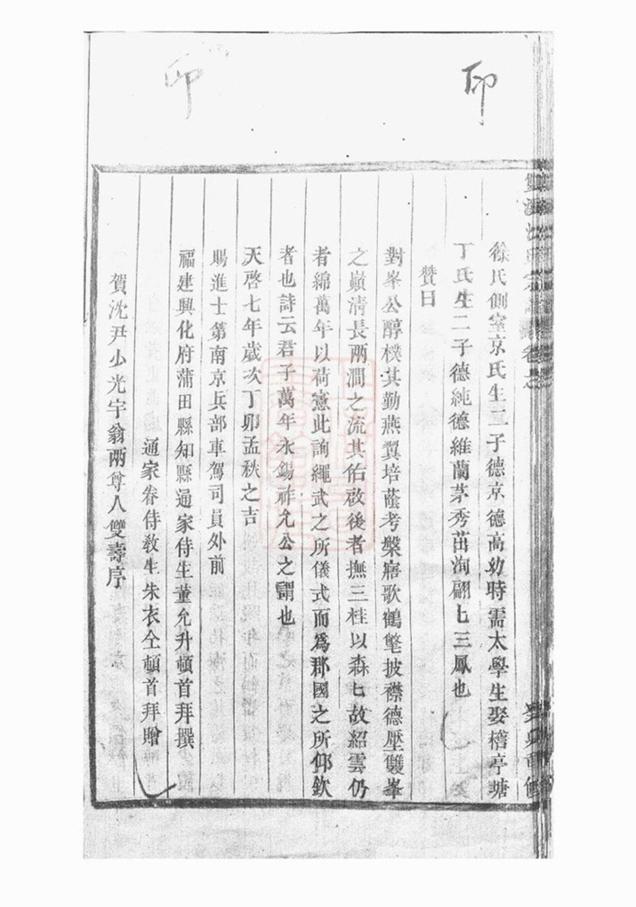 印
印
徐氏側室京氏生二子德京德高幼時需太學生娶稽亭塘
丁氏生二子德純德維蘭茅秀茁洵翩七三鳳也
贊曰
對峯公醇樸其勤燕翼培蔭考槃寤歌鶴氅披襟德壓雙峯
之巔清長兩澗之流其佑啟後者撫三桂以森七故紹雲仍
者綿萬年以荷憲此詢繩武之所儀式而為郡國之所仰欽
者也詩云君子萬年永錫祚允公之謂也
天啓七年歲次丁卯孟秋之吉
賜進士第南京兵部車駕司員外前
福建興化府蒲田縣知縣通家侍生董允升頓首拜撰
通家眷侍敎生朱衣仝頓首拜贈
賀沈尹少光宇翁兩尊人雙壽序